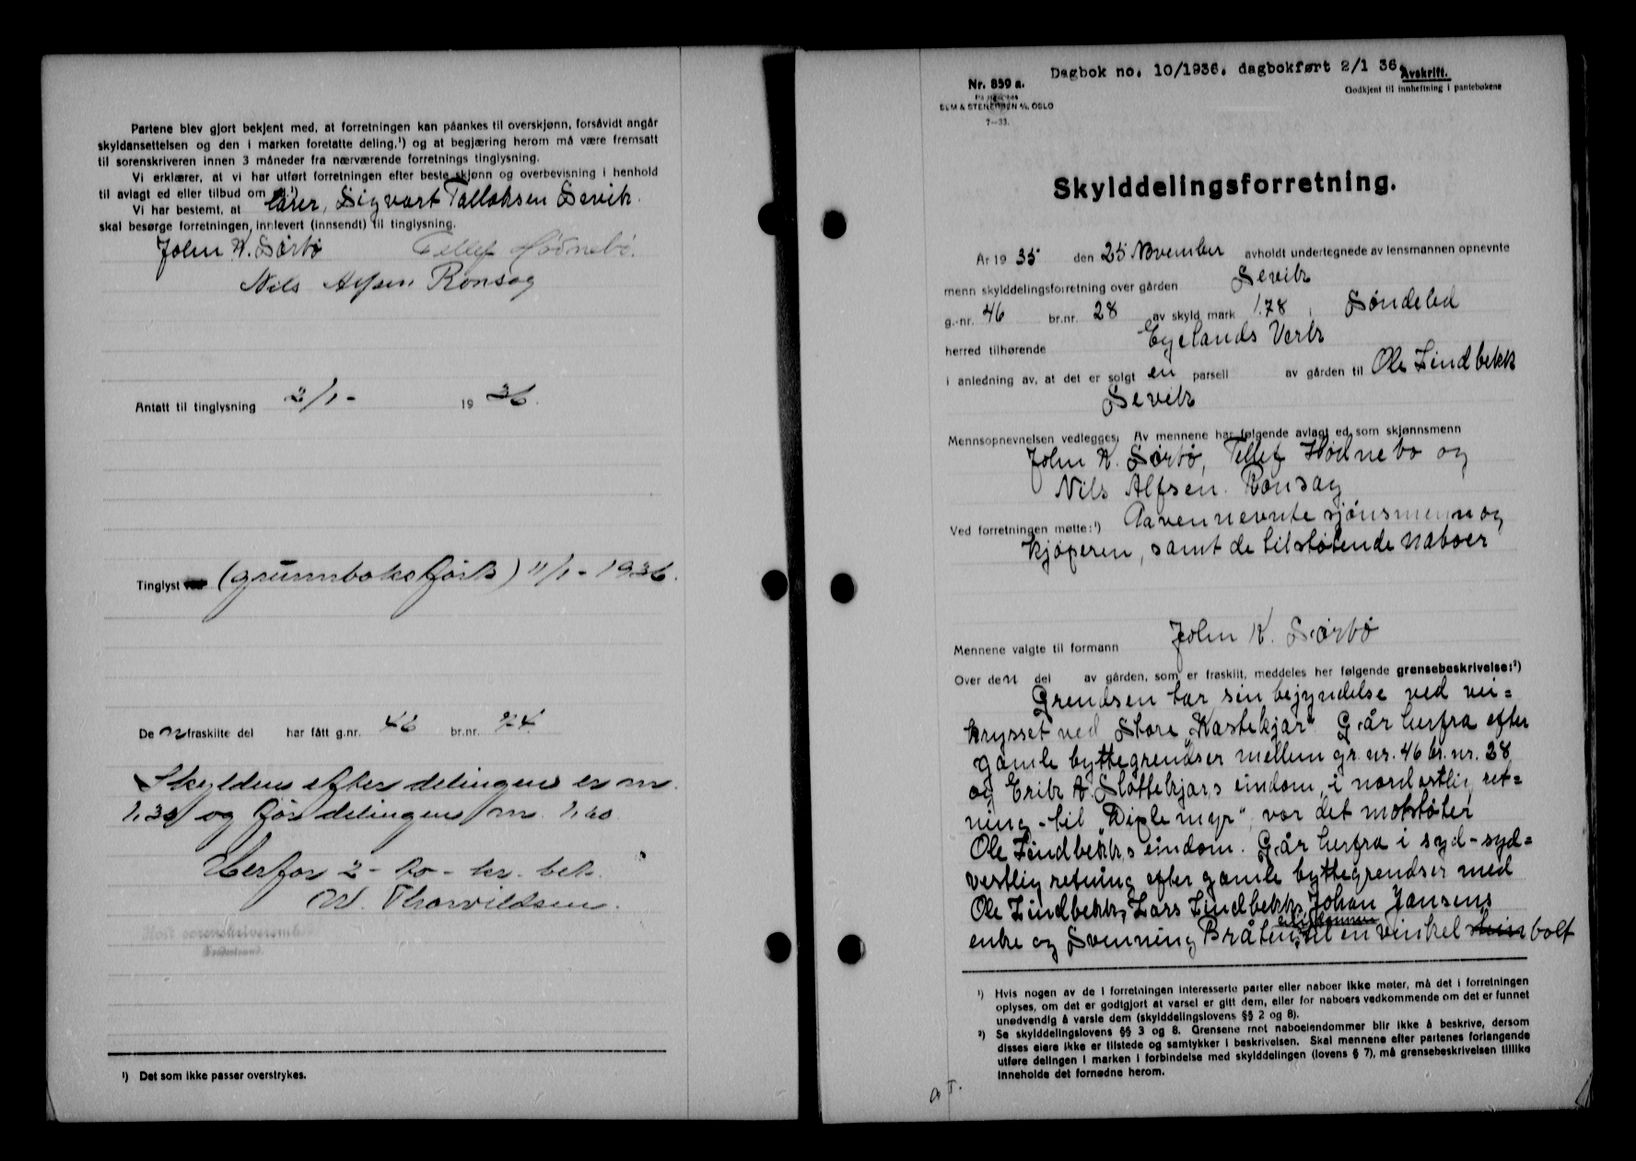 Partene blev gjort bekjent med, at forretningen kan påankes til overskjønn, forsåvidt angår
skyldansettelsen og den i marken foretatte deling,¹) og at begjæring herom må være fremsatt
til sorenskriveren innen 3 måneder fra nærværende forretnings tinglysning.
Vi erklærer, at vi har utført forretningen efter beste skjønn og overbevisning i henhold
til avlagt ed eller tilbud om ed.¹)
Vi har bestemt, at lærer, Sigvart Tallaksen Sevik.
skal besørge forretningen innlevert (innsendt) til tinglysning.
John K. Sørbø Tellef Hødnebø.
Nils Alfsen Ronsag
Antatt til tinglysning 2/1- 1936.
Tinglyst (grunnboksført) 11/1-1936.
De n fraskilte del har fått g.nr. 46 br.nr. 94
Skylden efter delingen er m.
1,30 og for delingen m. 1,60.
Herfor 2 - to - kr. bet.
Thorvildsen.
¹) Det som ikke passer overstrykes.
Dagbok no. 10/1936. dagbokført 2/1 36.
Nr. 859 a.
Avskrift.
Godkjent til innheftning i pantebøkene
SEM & STENERSEN A/S, OSLO
7—33.
Skylddelingsforretning.
År 1935 den 25 November avholdt undertegnede av lensmannen opnevnte
menn skylddelingsforretning over gården Sevik
g.-nr. 46 br.nr. 28 av skyld mark 1.78, Søndeled
herred tilhørende Egelands Verk
i anledning av, at det er solgt en parsell av gården til Ole Lindbekk
Sevik
Mennsopnevnelsen vedlegges. Av mennene har følgende avlagt ed som skjønnsmenn
John K. Sørbø, Tellef Hødnebø og
Nils Alfsen. Ronsag
Ved forretningen møtte:¹) Aavennevnte sjønsmenn og
kjøperen, samt de tilstøtende naboer
Mennene valgte til formann John K. Sørbø
Over den del av gården, som er fraskilt, meddeles her følgende grensebeskrivelse:²)
Grendsen tar sin bejyndelse ved vei=
krysset ved Store "Kastekjær" Går herfra efter
gamle byttegrendser mellem gr. nr. 46 br. nr. 28
og Erik A. Slottekjærs eindom, i nordostlig ret=
ning - til "Diplemyr", vor det motstøter
Ole Lindbekks eindom. Går herfra i syd-syd=
vestlig retning efter gamle byttegrendser med
Ole Lindbekk, Lars Lindbekks, Johan Jansens
enke og Svenning Bråten, til en vinkel bolt
¹) Hvis nogen av de i forretningen interesserte parter eller naboer ikke møter, må det i forretningen
oplyses, om det er godtgjort at varsel er gitt dem, eller for naboers vedkommende om det er funnet
unødvendig å varsle dem (skylddelingslovens §§ 2 og 8).
²) Se skylddelingslovens §§ 3 og 8. Grensene mot naboeiendommer blir ikke å beskrive, dersom
disses eiere ikke er tilstede og samtykker i beskrivelsen. Skal mennene efter partenes forlangende
utføre delingen i marken i forbindelse med skylddelingen (lovens § 7), må grensebeskrivelsen tillike
inneholde det fornødne herom.